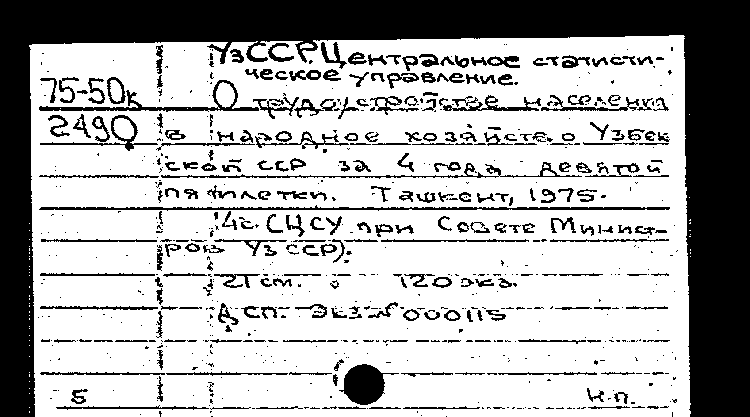 УзССР. Центральное статисти-
ческое управление.
75-50к
О трудоустройстве населения
2490
в народное хозяйство Узбек
ской ССР за 4 года девятой
пятилетки. Ташкент, 1975.
14с. (ЦСУ при Совете Минист-
ров УзССР).
21 см. 120 экз.
ДСП. Экз.№ 000115
5 н.п.